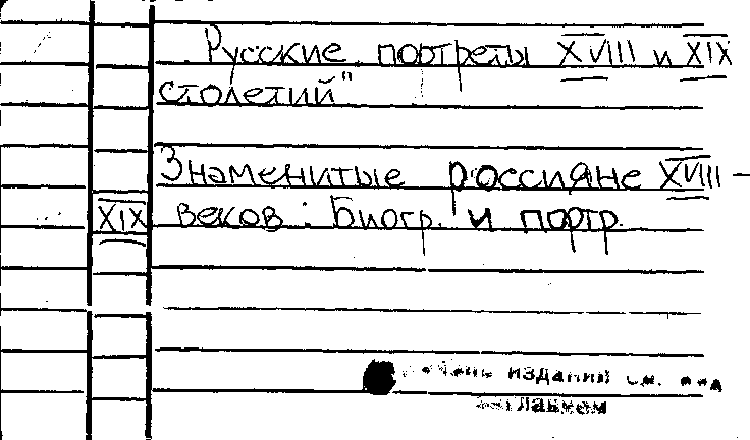 Русские портреты XVIII и XIX
столетий"
Знаменитые россияне XVIII -
XIX веков : Биогр. и портр.
изданий см. под
заглавием